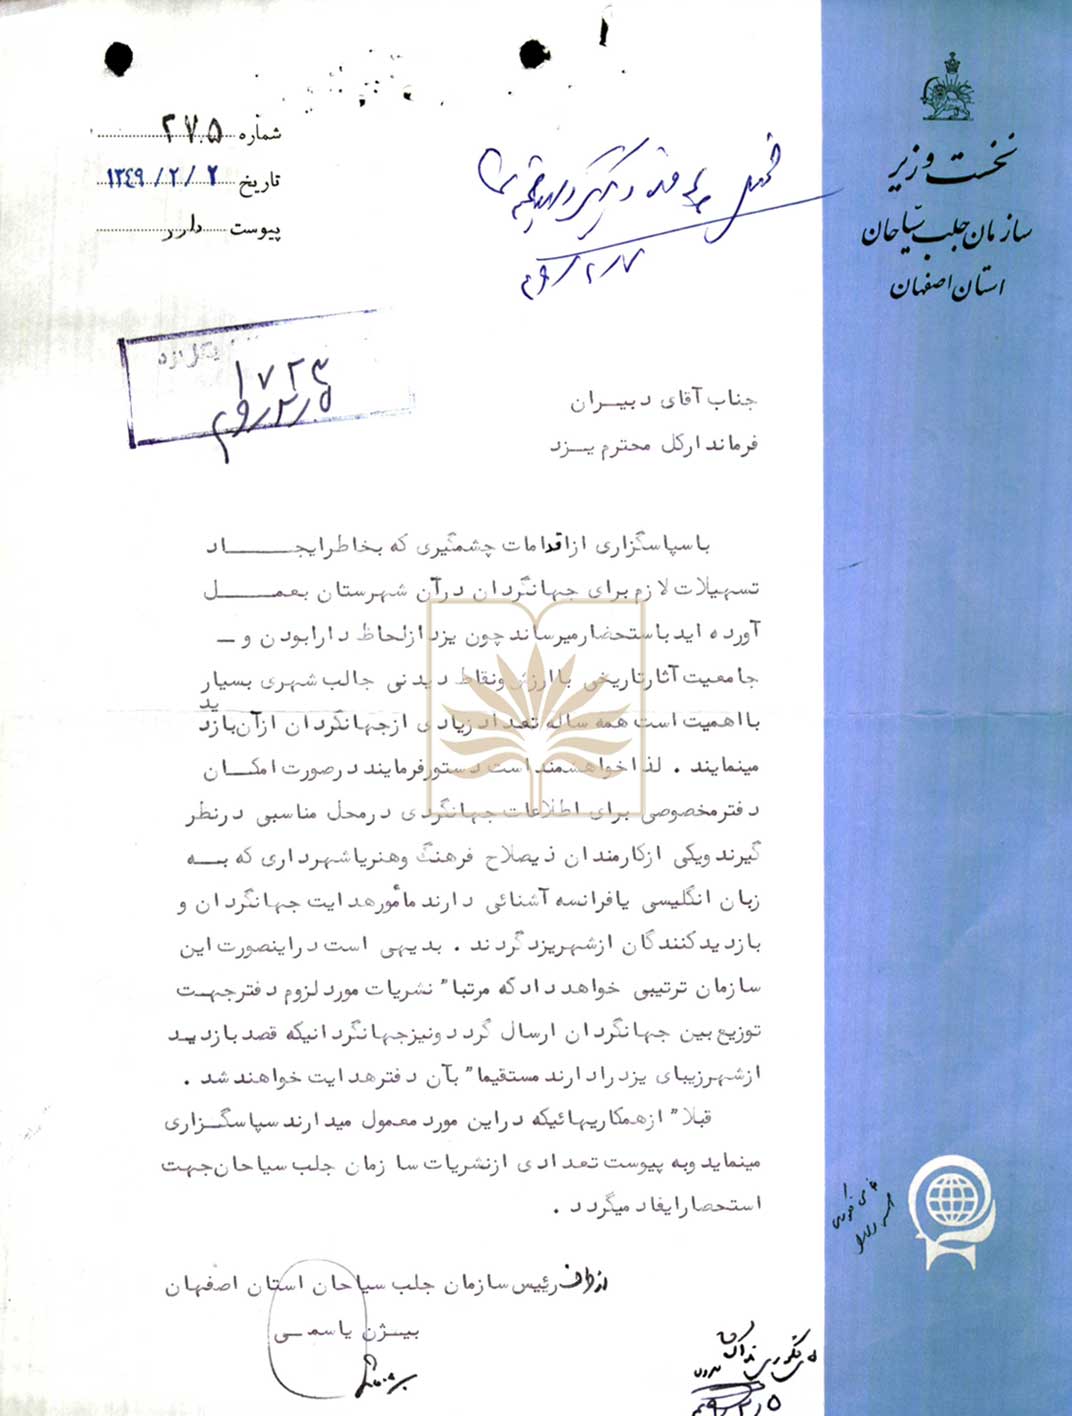 نخست وزیر
سازمان جلب سیاحان
استان اصفهان
شماره ۲۷۰۵
تاریخ ۱۳۴۹/۲/۲
پیوست دارد
۱۷۲۳
۴۹/۲/۵
جناب آقای دبیران
فرماندارکل محترم یزد
باسپاسگزاری از اقدامات چشمگیری که بخاطر ایجاد
تسهیلات لازم برای جهانگردان در آن شهرستان بعمل
آورده اید باستحضار میرساند چون یزد از لحاظ دارا بودن و -
جامعیت آثار تاریخی با ارزش و نقاط دیدنی جالب شهری بسیار
با اهمیت است همه ساله تعداد زیادی از جهانگردان از آن بازدید
مینمایند . لذا خواهشمند است دستور فرمایند در صورت امکان
دفتر مخصوصی برای اطلاعات جهانگردی در محل مناسبی در نظر
گیرند ویکی از کارمندان ذیصلاح فرهنگ وهنر یا شهرداری که به
زبان انگلیسی یا فرانسه آشنائی دارند مأمور هدایت جهانگردان و
بازدید کنندگان از شهر یزد گردند . بدیهی است در اینصورت این
سازمان ترتیبی خواهد داد که مرتبا" نشریات مورد لزوم دفتر جهت
توزیع بین جهانگردان ارسال گردد ونیز جهانگردانیکه قصد بازدید
از شهر زیبای یزد را دارند مستقیما" بآن دفتر هدایت خواهند شد .
قبلا" از همکاریهائیکه در این مورد معمول میدارند سپاسگزاری
مینماید وبه پیوست تعدادی از نشریات سازمان جلب سیاحان جهت
استحضار ایفاد میگردد .
از طرف رئیس سازمان جلب سیاحان استان اصفهان
بیژن یاسمی